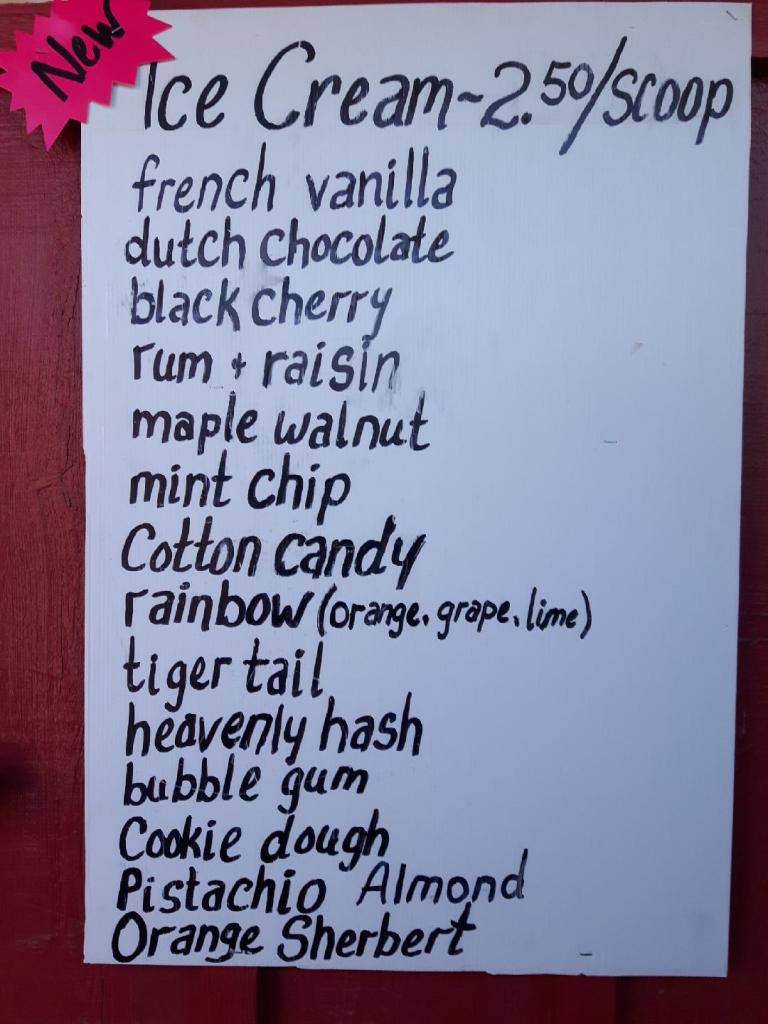 New
Ice Cream~2.50/scoop
french vanilla
dutch chocolate
black cherry
rum + raisin
maple walnut
mint chip
Cotton candy
rainbow (orange, grape, lime)
tiger tail
heavenly hash
bubble gum
Cookie dough
Pistachio Almond
Orange Sherbert